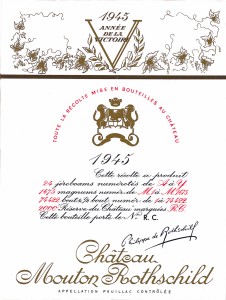 1945
ANNÉE
DE LA
VICTOIRE
V
TOUTE LA RÉCOLTE MISE EN BOUTEILLES AU CHÂTEAU
1945
Cette récolte a produit
24 jéroboams numérotés de A à Y
1475 magnums numér. de M1 à M1475
74422 bout.& ½ bout. numér. de 1à 74422
2000 "Réserve du Château" marquées R.C.
Cette bouteille porte le Nº R. C.
Philippe de Rothschild
Château
Mouton Rothschild
APPELLATION PAUILLAC CONTRÔLÉE